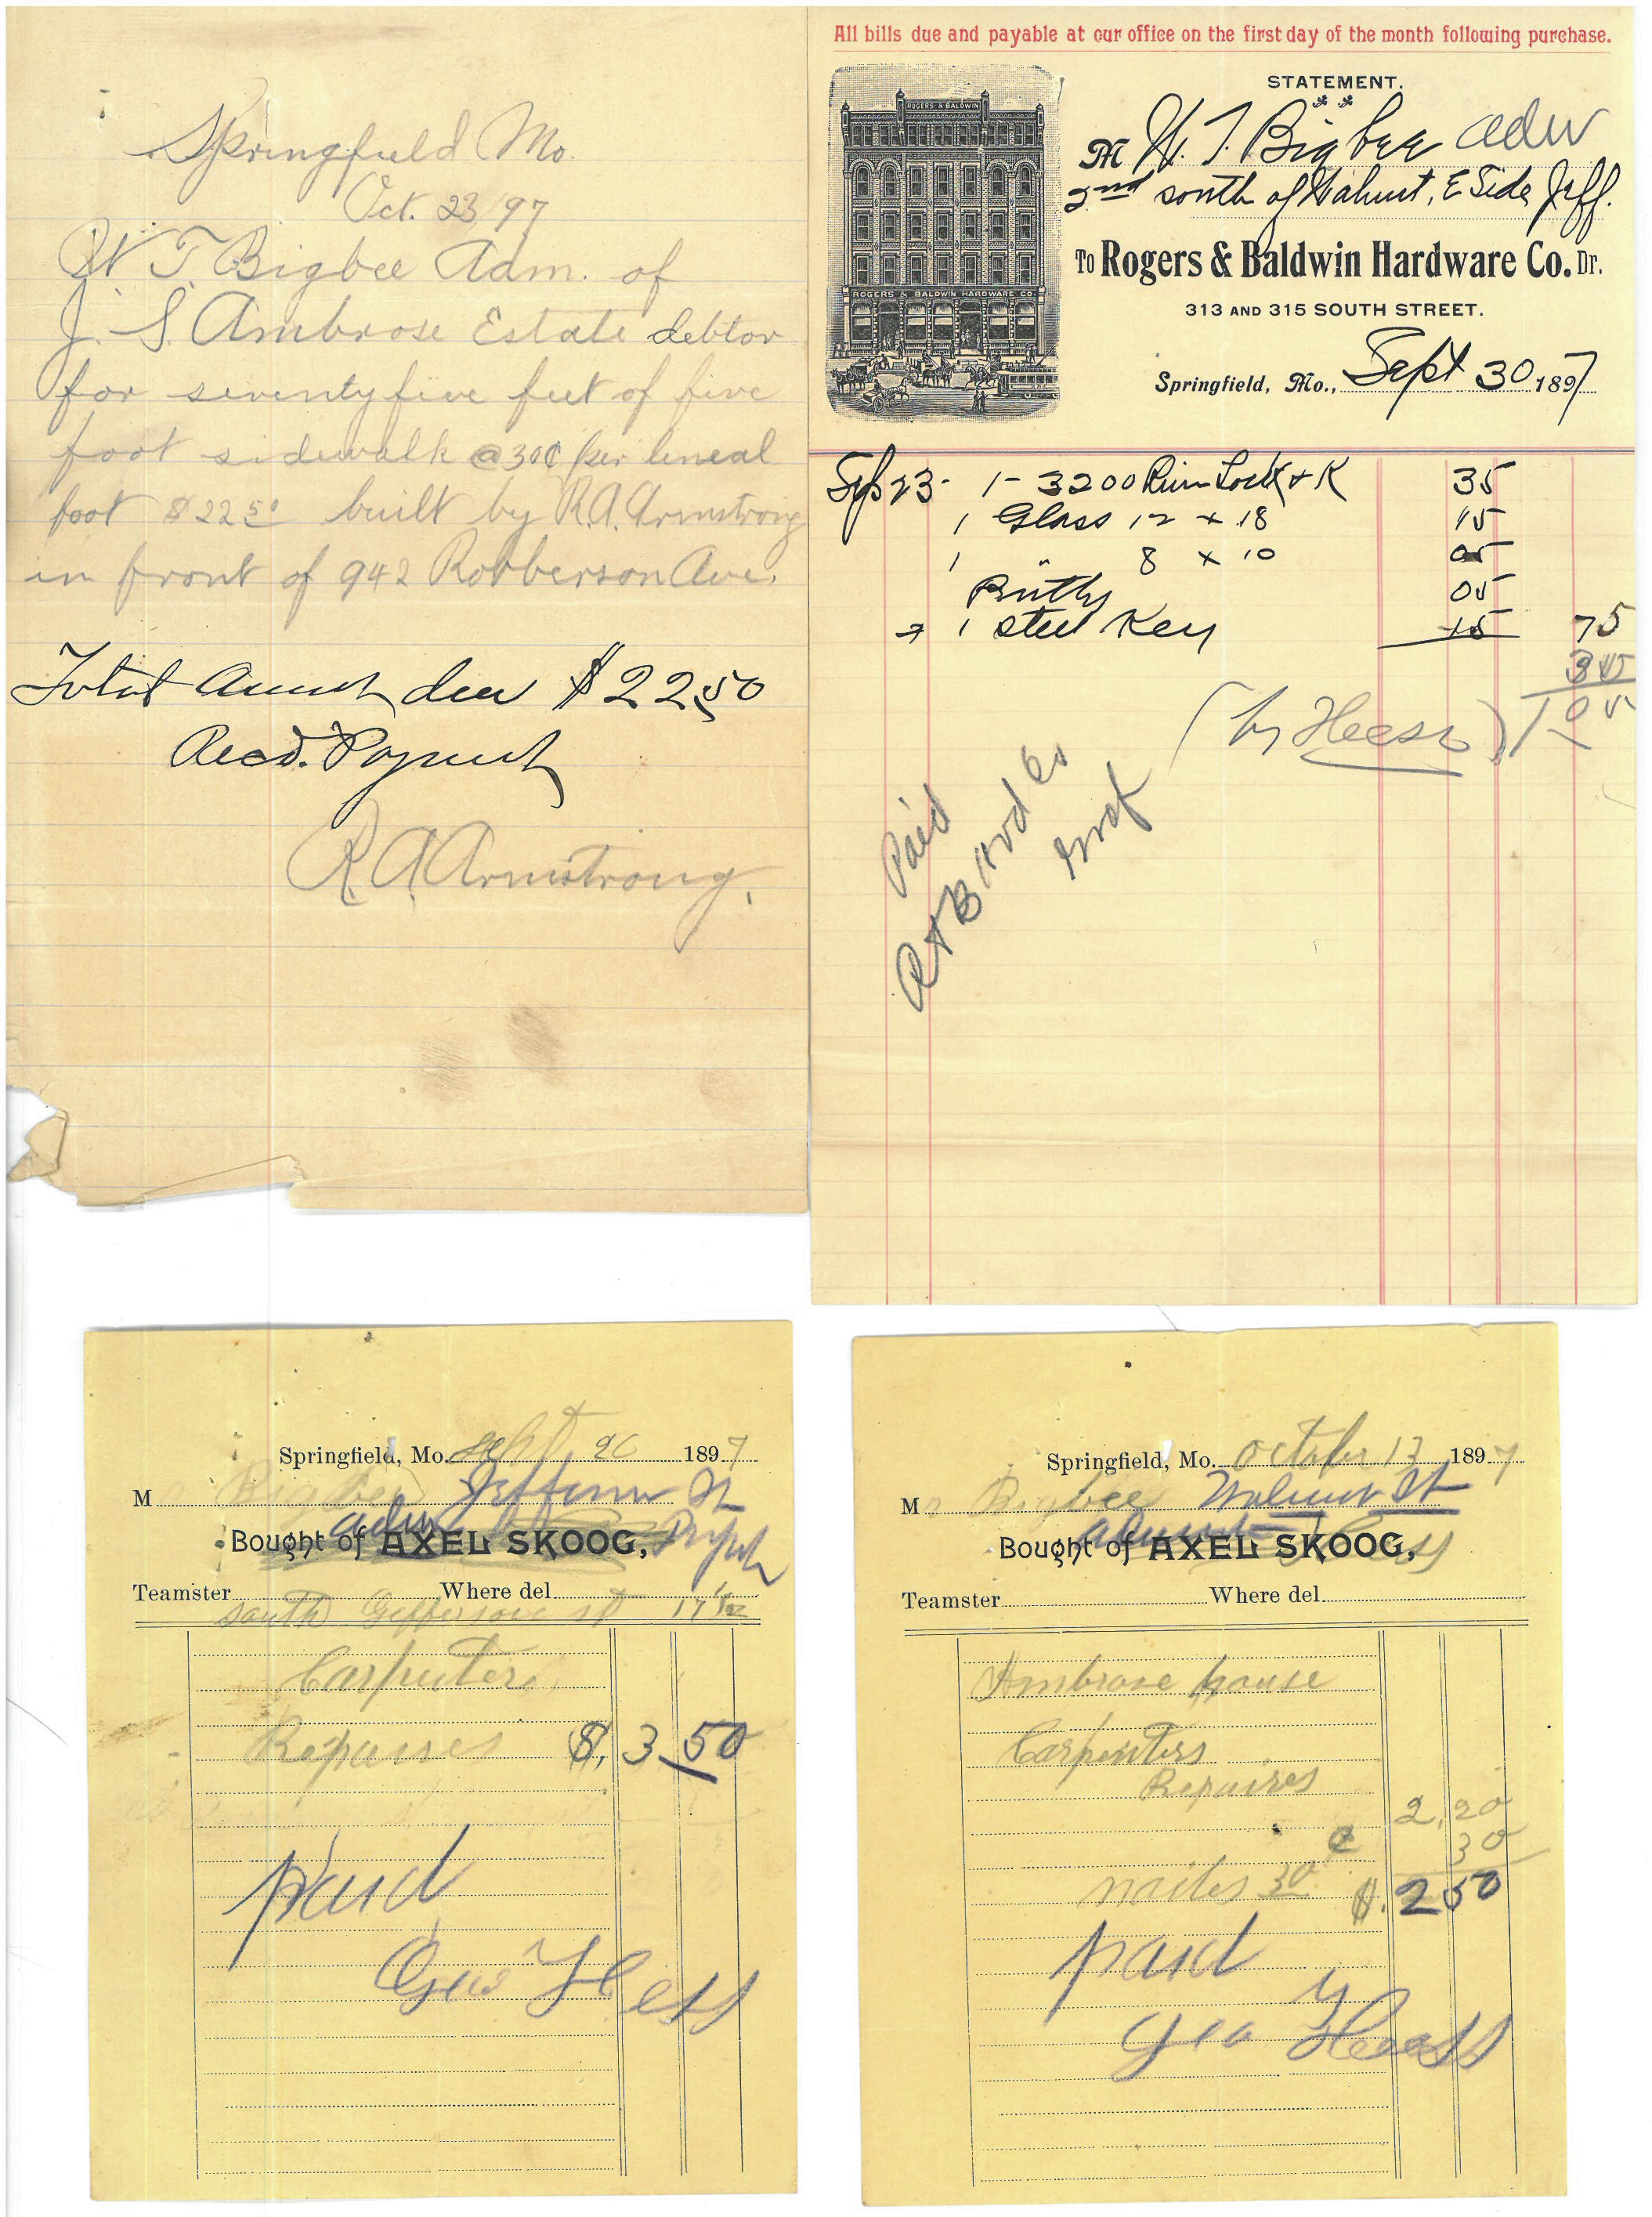 Springfield Mo.
Oct. 23/97
W T Bigbee Adm. of
J. S. Ambrose Estate debtor
for seventyfive feet of five
foot sidewalk @30¢ per lineal
foot $22 50 built by R.A. Armstrong
in front of 942 Robberson Ave.
Total Amount due $22.50
Recd. Payment
R. A Armstrong.
All bills due and payable at our office on the first day of the month following purchase.
ROGERS & BALDWIN
ROGERS & BALDWIN HARDWARE CO.
STATEMENT.
M W. T. Bigbee adm
2nd south of Walnut, E Side Jeff.
To Rogers & Baldwin Hardware Co. Dr.
313 AND 315 SOUTH STREET.
Springfield, Mo., Sept 30 1897
Sep 23- 1- 3200 Rim Lock + K 35
1 Glass 12 x 18 15
1 " 8 x 10 05
Putty 05
1 steel Key 15 75
(by Heess)
Paid
R & B Hrd Co
Springfield, Mo. Sept. 26 1897
M Bigbee Jefferson St
adm
Bought of AXEL SKOOG,
Teamster Where del.
South Jefferson st
Carpenters
Repaires $. 3 50
paid
Geo Hess
Springfield, Mo. October 13 1897
Mr Bigbee Walnut St
Bought of AXEL SKOOG,
Teamster Where del.
Ambrose house
Carpenters
Repaires
2,20
30
nailes 30 $. 2 50
paid
Geo Heess